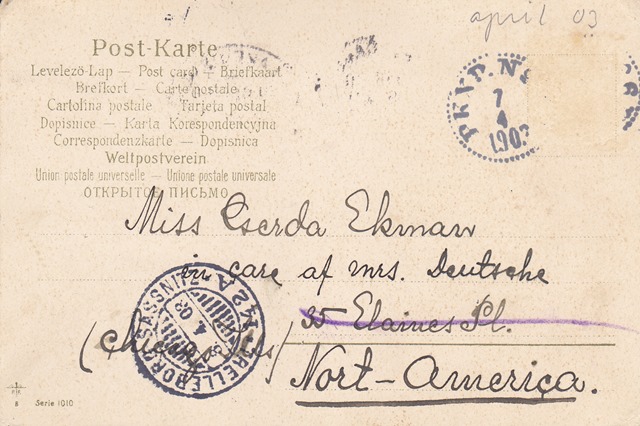 april 03
Post-Karte
Levelező-Lap — Post card — Briefkaart
Brefkort — Carte postale
Cartolina postale Tarjeta postal
Dopisnice — Karta Korespondencyjna
Correspondenzkarte — Dopisnica
Weltpostverein
Union postale universelle — Unione postale universale
ОТКРЫТОЕ ПИСЬМО
PKXP. N
7
4
1903
Miss Gserda Ekman
in care af mrs. Deutsche
35 Elaines Pl.
Nort-America.
SASSNITZ
TRELLEBORG
142 A
8 4 03
8 Serie 1010